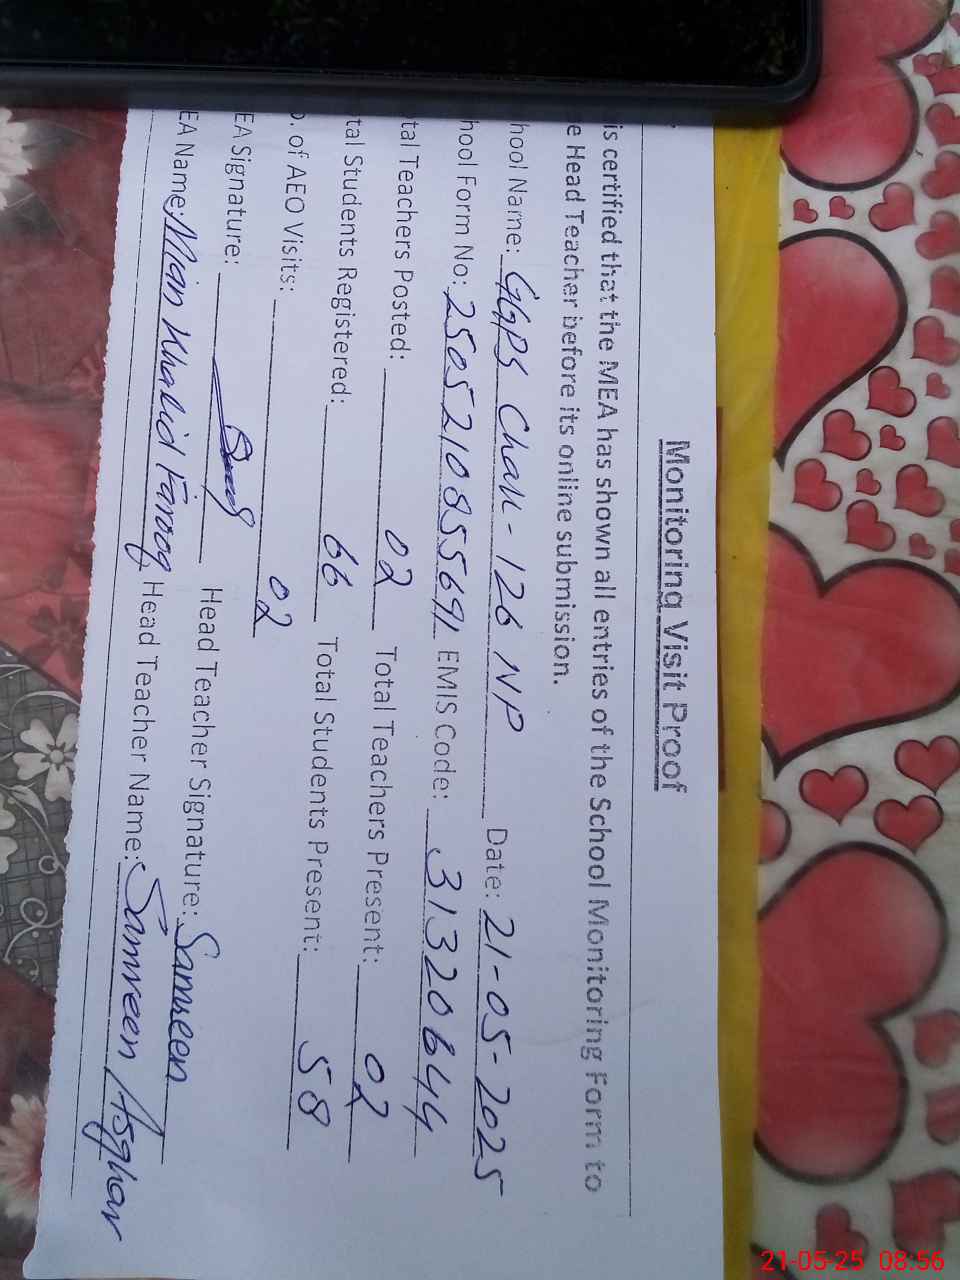 Monitoring Visit Proof
is certified that the MEA has shown all entries of the School Monitoring Form to
e Head Teacher before its online submission.
hool Name: GGPS Chak - 126 NP Date: 21-05-2025
hool Form No: 2505210855691 EMIS Code: 31320644
tal Teachers Posted: 02 Total Teachers Present: 02
tal Students Registered: 66 Total Students Present: 58
o. of AEO Visits: 02
EA Signature: Head Teacher Signature: Samreen
EA Name: Mian Khalid Farooq Head Teacher Name: Samreen Asghar
21-05-25 08:56